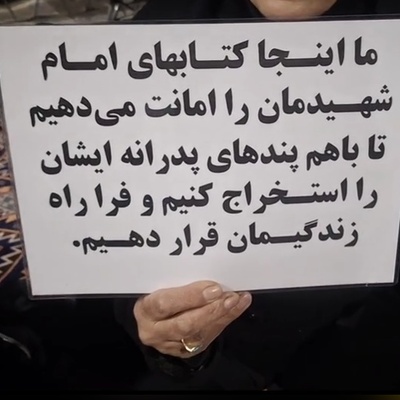 ما اینجا کتابهای امام
شهیدمان را امانت می‌دهیم
تا باهم پندهای پدرانه ایشان
را استخراج کنیم و فرا راه
زندگیمان قرار دهیم.